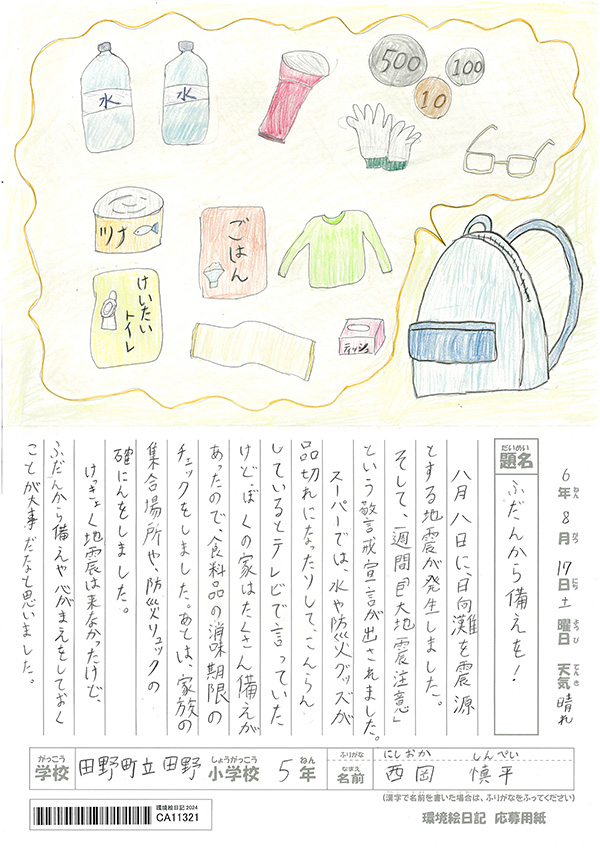 500
100
10
水
水
ツナ
ごはん
けいたい
トイレ
ティッシュ
6年 8月 17日 土曜日 天気 晴れ
ねん
がつ
にち
ようび
てんき
だいめい
題名
ふだんから備えを!
八月八日に、日向灘を震源
とする地震が発生しました。
そして、一週間「巨大地震注意」
という警戒宣言が出されました。
スーパーでは、水や防災グッズが
品切れになったりして、こんらん
しているとテレビで言っていた
けど、ぼくの家はたくさん備えが
あったので、食料品の消味期限の
チェックをしました。あとは、家族の
集合場所や、防災リュックの
確にんをしました。
けっきょく地震は来なかったけど、
ふだんから備えや心がまえをしておく
ことが大事だなと思いました。
がっこう
しょうがっこう
ねん
ふりがな
にしおか しんぺい
学校 田野町立田野 小学校 5年
なまえ
名前 西岡 慎平
(漢字で名前を書いた場合は、ふりがなをふってください)
環境絵日記2024
CA11321
環境絵日記 応募用紙